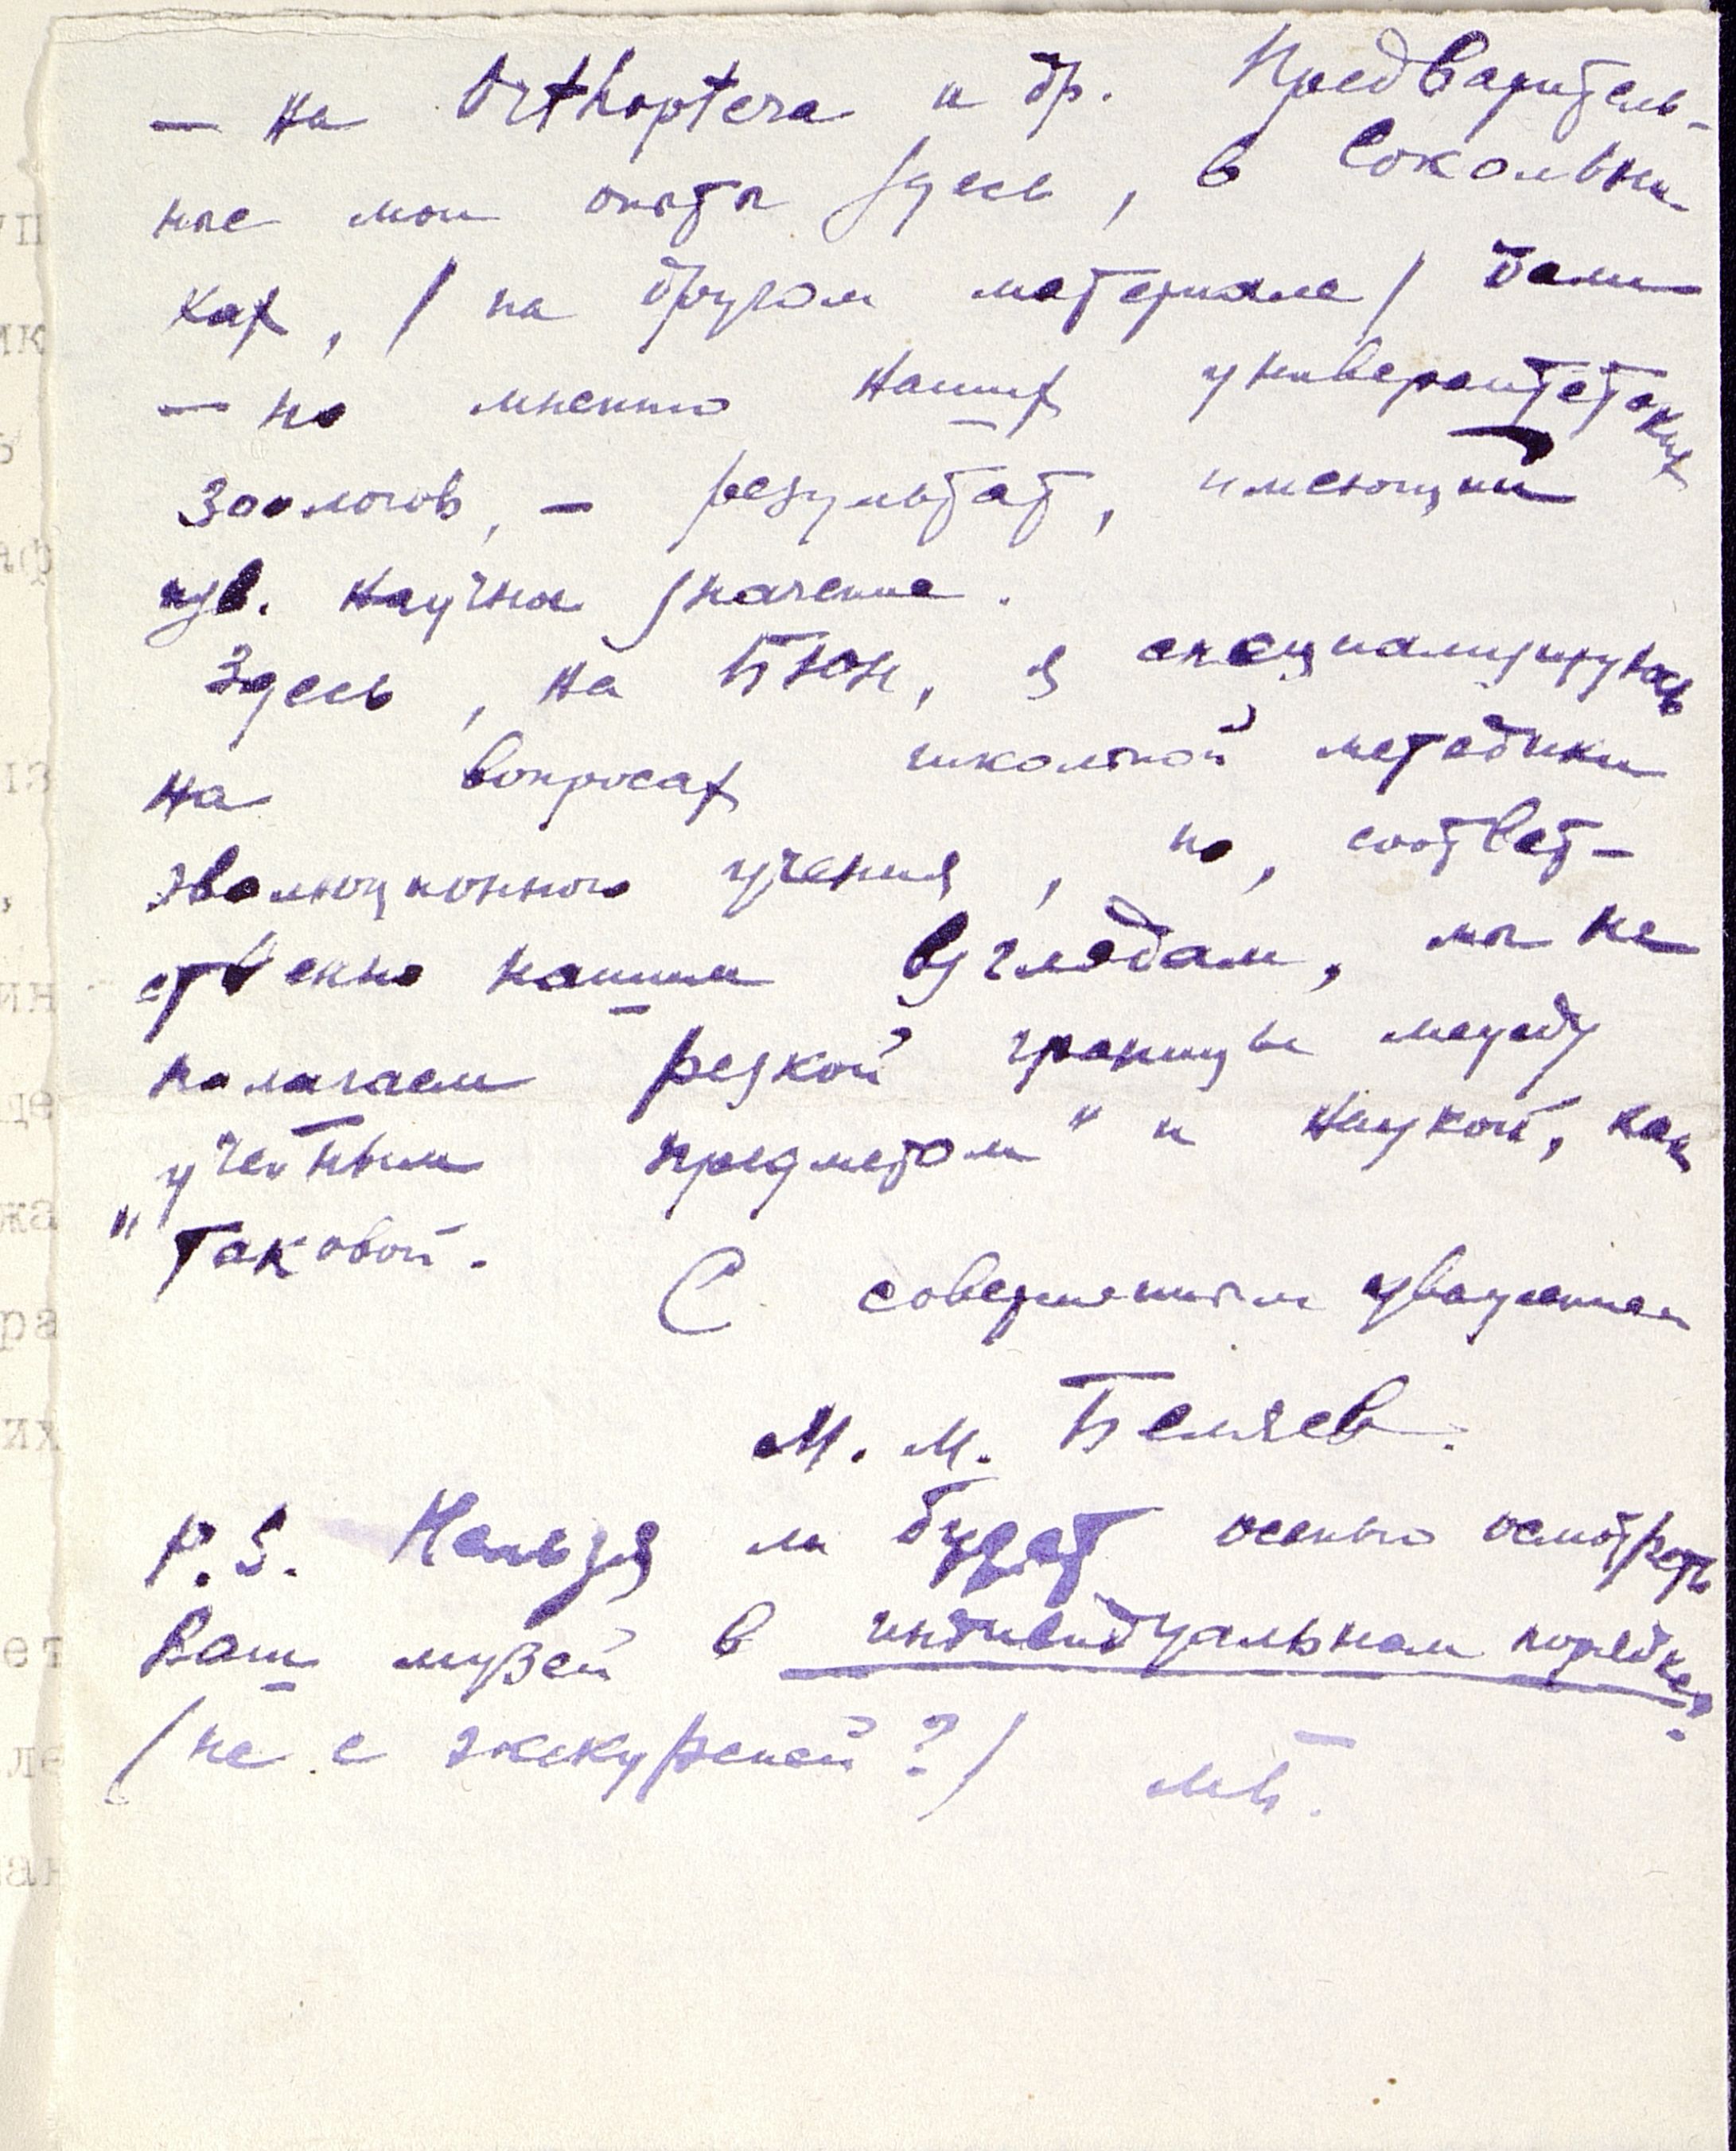 — на Orthoptera и др. Предваритель-
ные мои опыты здесь, в Сокольни-
ках, / на другом материале / дали
— по мнению наших университетских
зоологов, — результат, имеющий
изв. научное значение.
Здесь, на БЮН, я специализируюсь
на вопросах школьной методики
эволюционного учения, но, соответ-
ственно нашим взглядам, мы не
полагаем резкой границы между
„учебным предметом" и наукой, как
таковой.
С совершенным уважением
М. М. Беляев.
P.S. Нельзя ли будет осенью осмотреть
Ваш музей в индивидуальном порядке?
(не с экскурсией?) МБ.
уп
ик
аф
из
ин
де
жа
ра
их
ет
ле
ан